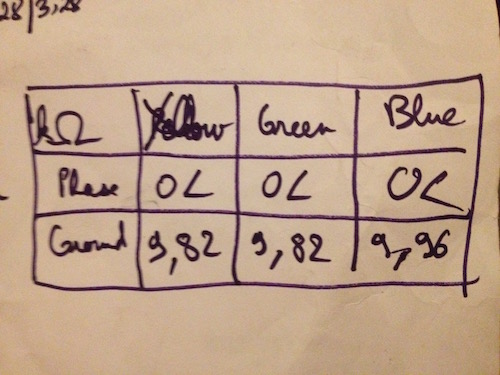 28/3,28
kΩ Yellow Green Blue
Phase OL OL OL
Ground 9,82 9,82 9,96